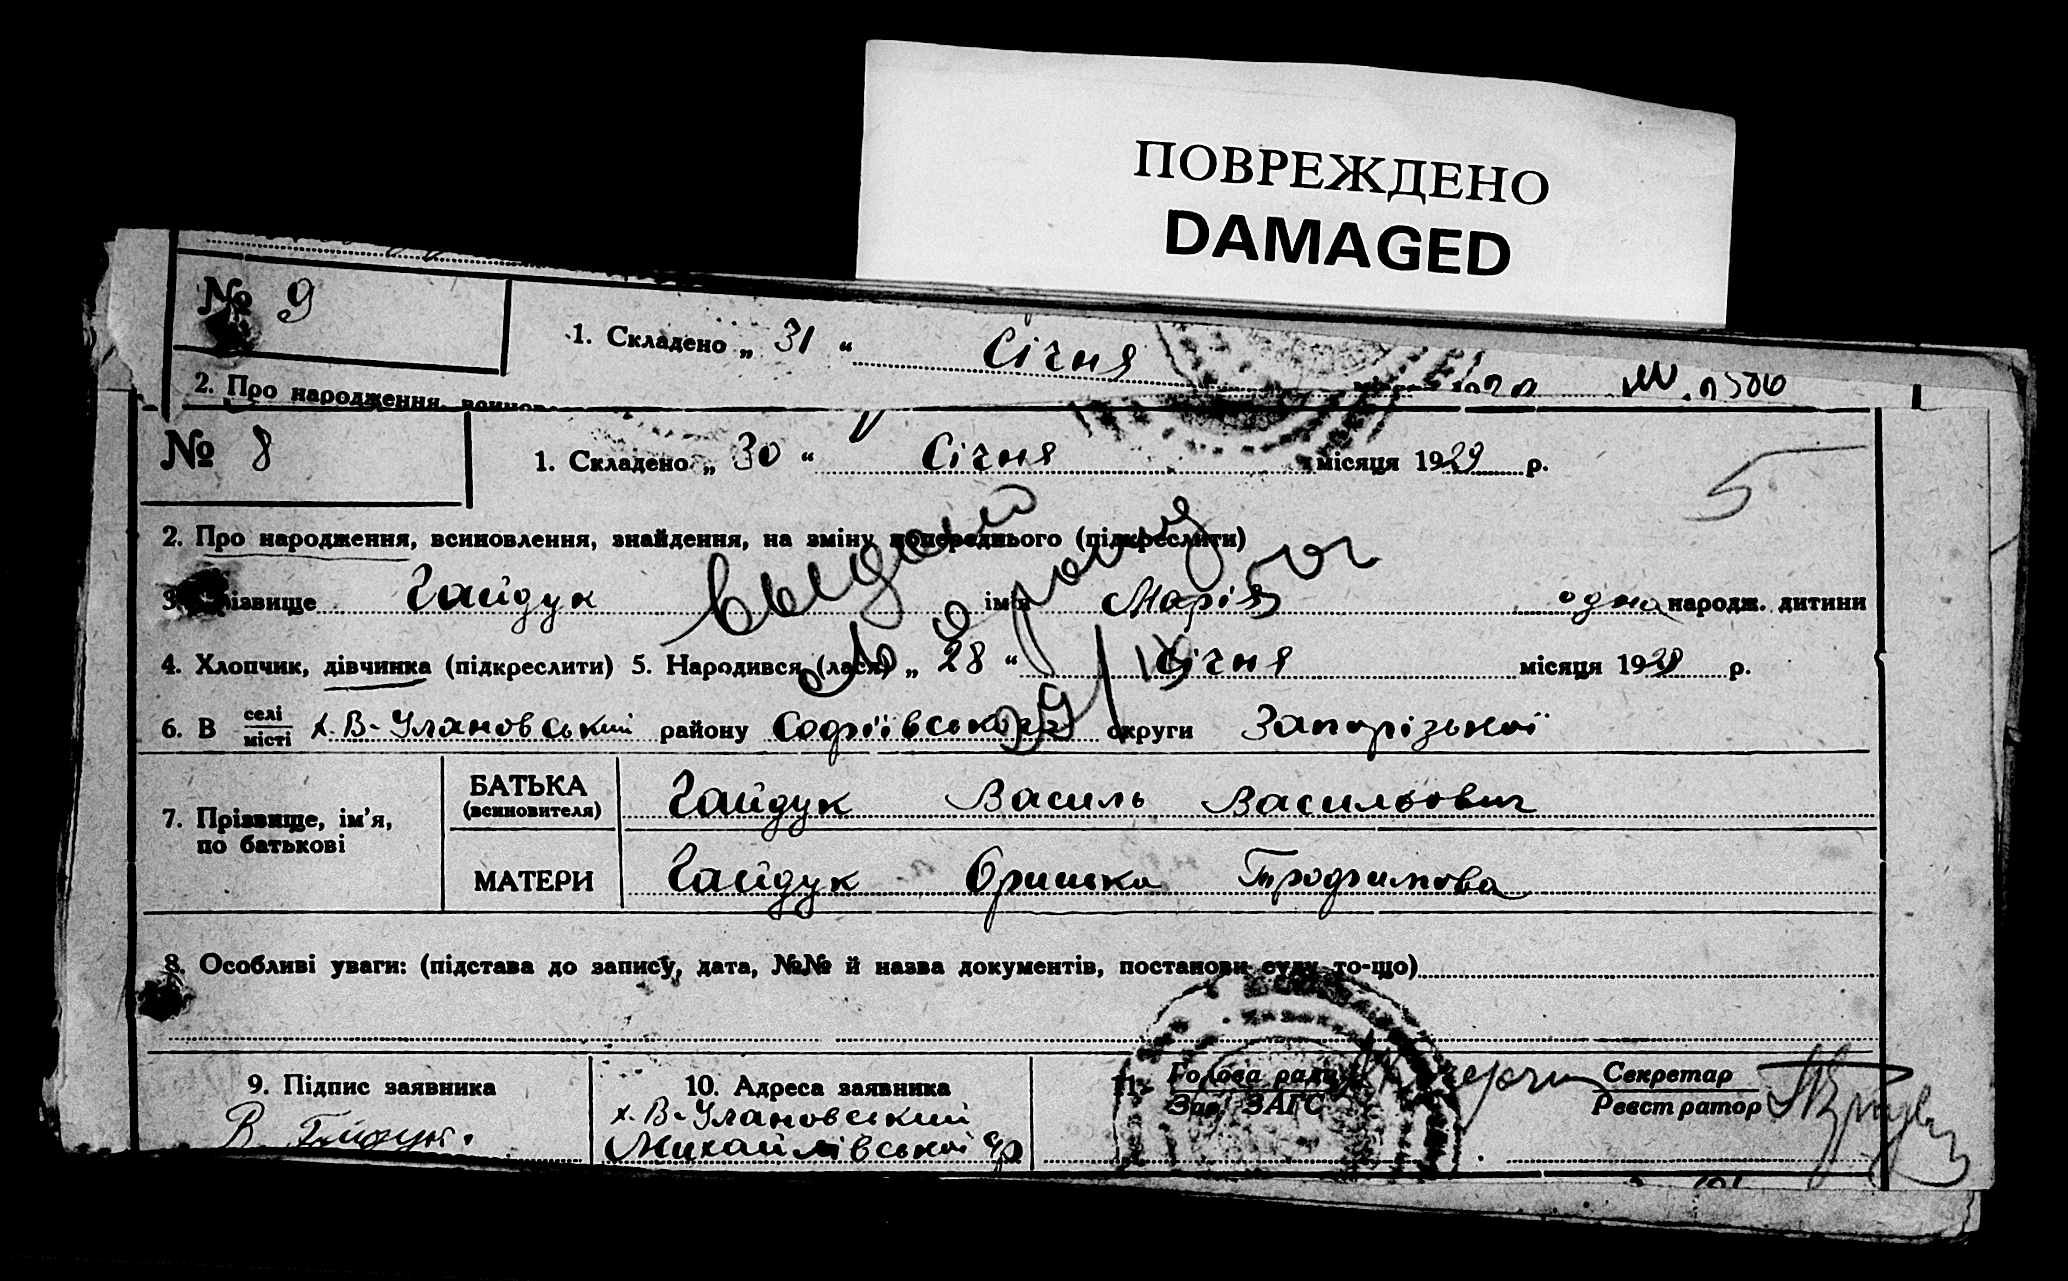 ПОВРЕЖДЕНО
DAMAGED
№ 9
1. Складено „ 31 “ Січня
2. Про народження,
№ 8
1. Складено „ 30 “ Січня місяця 1929 р.
5
2. Про народження, всиновлення, знайдення, на зміну попереднього (підкреслити)
3. Прізвище Гайдук ім'я Марія одна народж. дитини
4. Хлопчик, дівчинка (підкреслити) 5. Народився (лася) „ 28 “ Січня місяця 1929 р.
6. В селі/місті х. В-Улановський району Софіївського округи Запорізької
7. Прізвище, ім'я, по батькові
БАТЬКА (всиновителя) Гайдук Василь Васильович
МАТЕРИ Гайдук Оришка Трофимова
8. Особливі уваги: (підстава до запису, дата, №№ й назва документів, постанови суду то-що)
9. Підпис заявника
В. Гайдук.
10. Адреса заявника
х. В-Улановський
Михайлівської с/р
11. Голова ради
Зав. ЗАГС
Секретар
Реєстратор